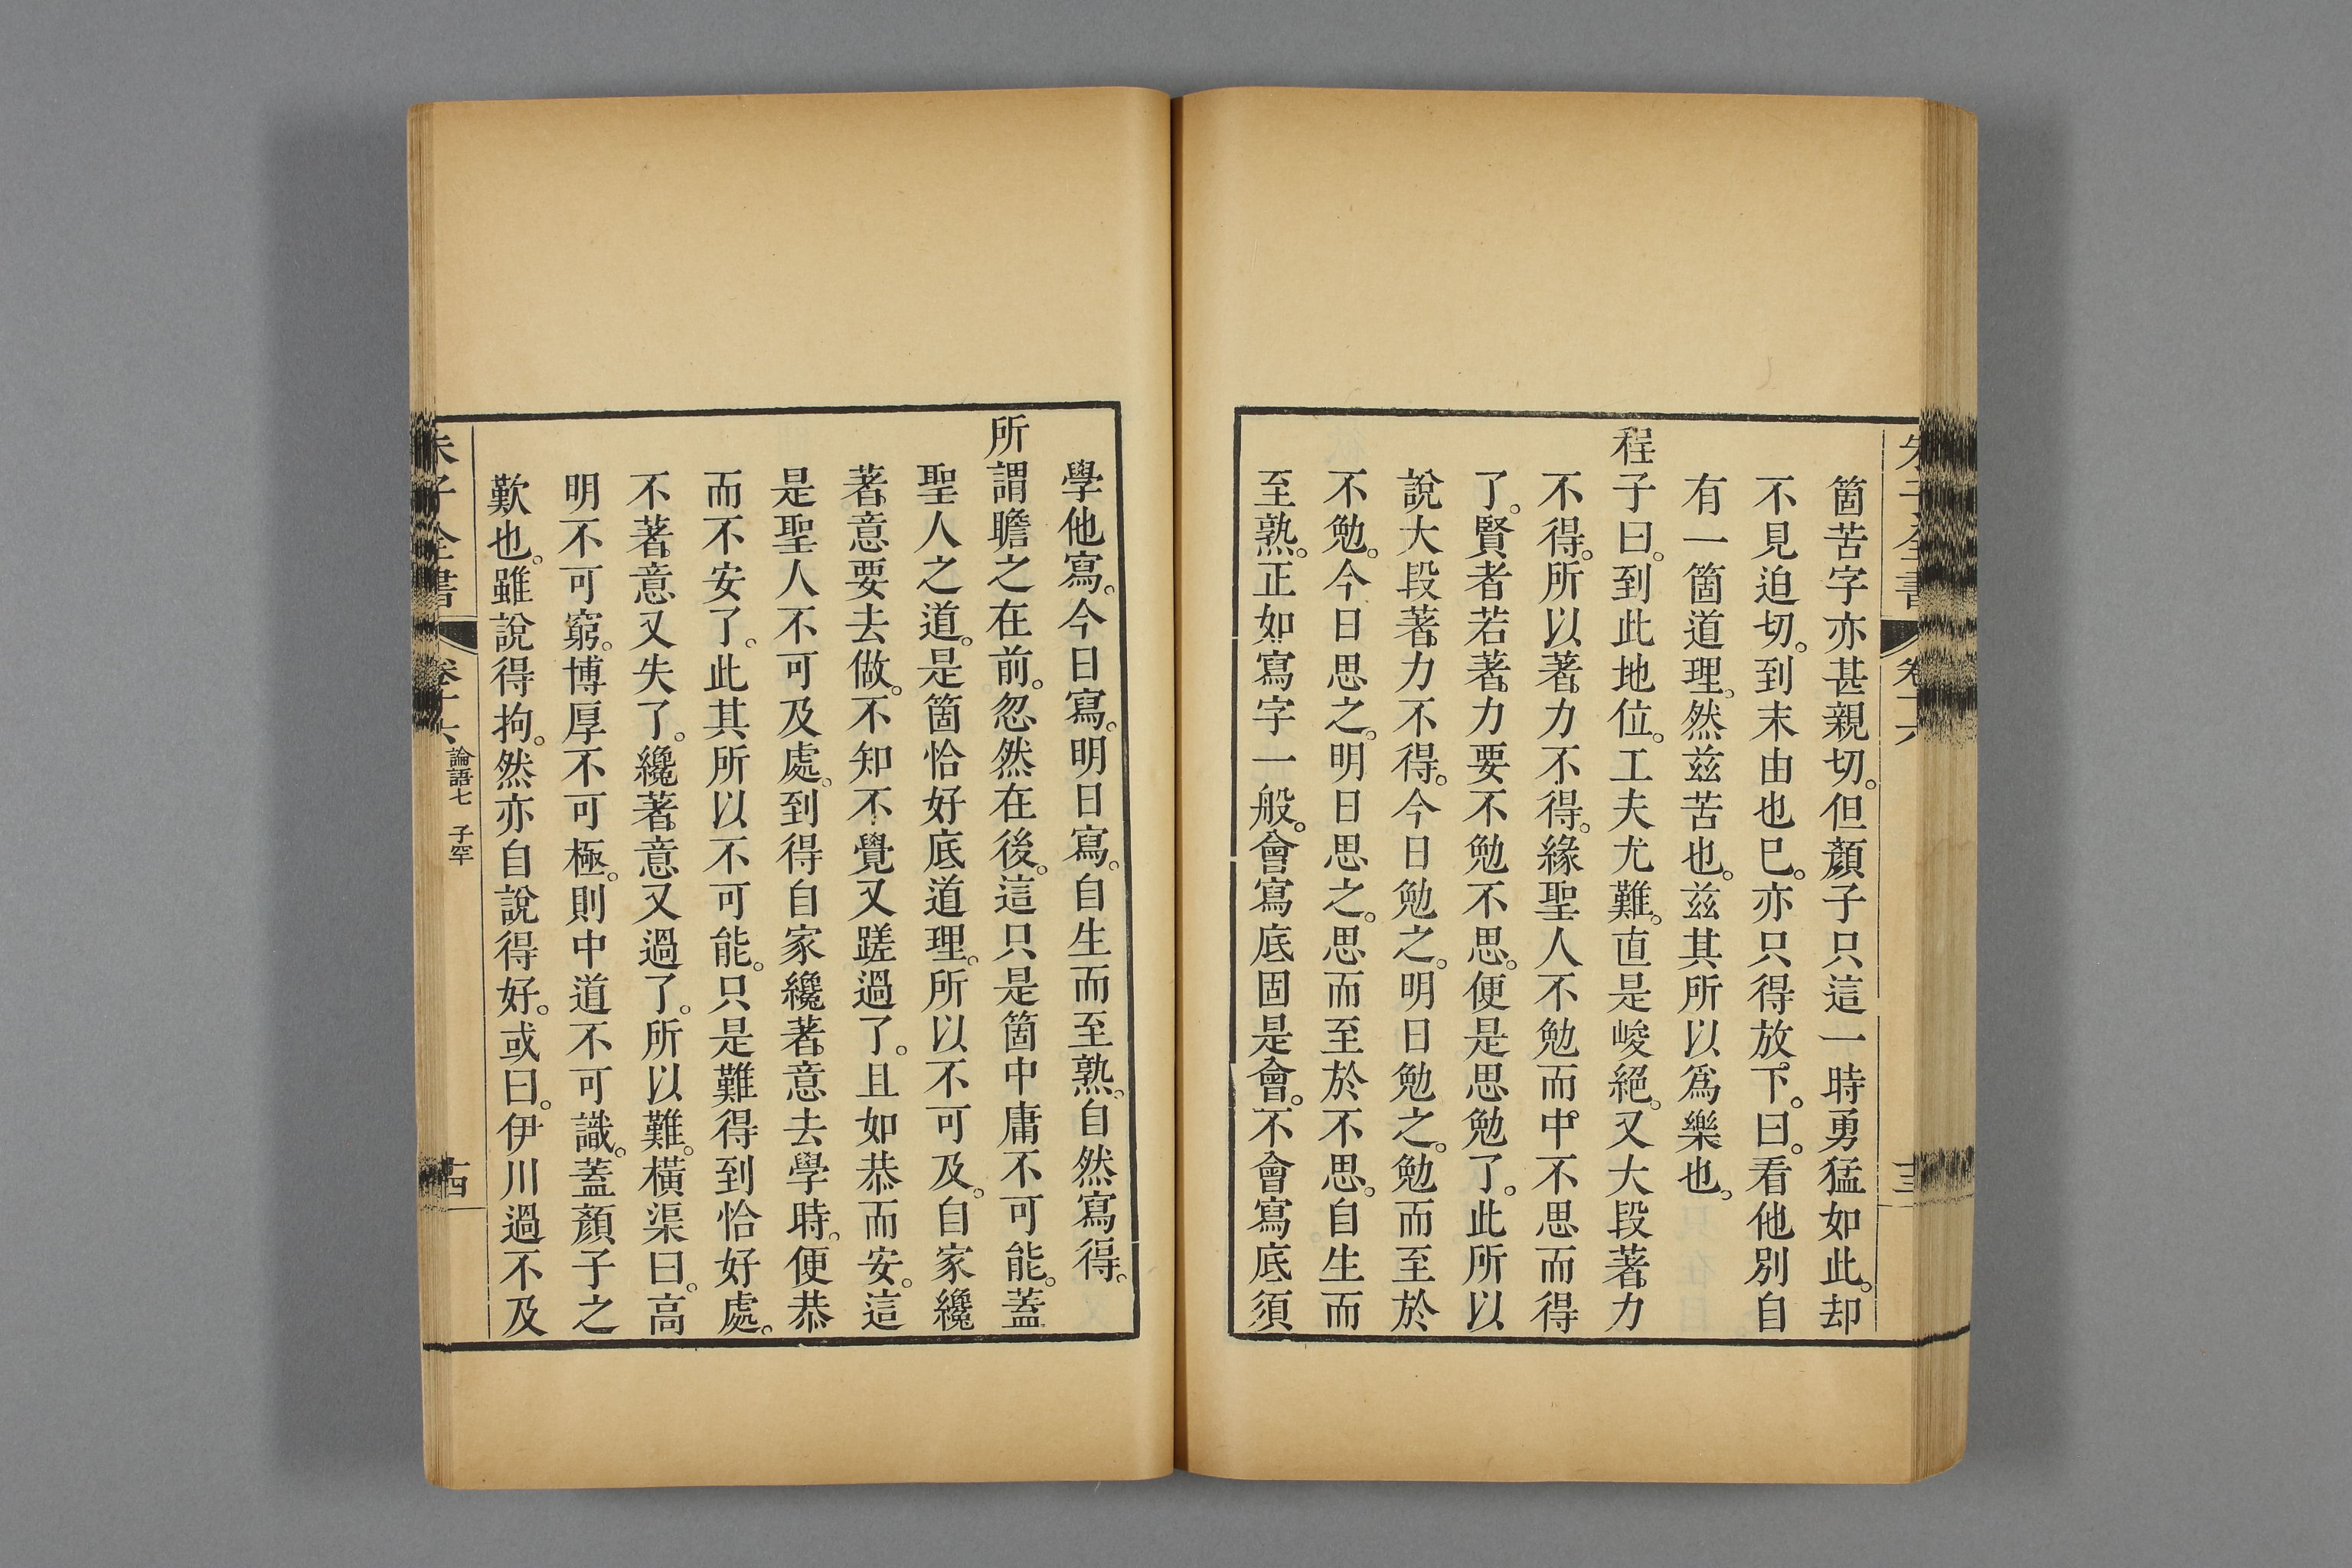 朱子全書 卷十六 十三
箇苦字亦甚親切。但顏子只這一時勇猛如此。却
不見迫切。到末由也已。亦只得放下。曰。看他別自
有一箇道理。然兹苦也。兹其所以爲樂也。
程子曰。到此地位。工夫尤難。直是峻絕。又大段著力
不得。所以著力不得。緣聖人不勉而中不思而得
了。賢者若著力要不勉不思。便是思勉了。此所以
說大段著力不得。今日勉之。明日勉之。勉而至於
不勉。今日思之。明日思之。思而至於不思。自生而
至熟。正如寫字一般。會寫底固是會。不會寫底須
學他寫。今日寫。明日寫。自生而至熟。自然寫得。
所謂瞻之在前。忽然在後。這只是箇中庸不可能。蓋
聖人之道。是箇恰好底道理。所以不可及。自家纔
著意要去做。不知不覺又蹉過了。且如恭而安。這
是聖人不可及處。到得自家纔著意去學時。便恭
而不安了。此其所以不可能。只是難得到恰好處。
不著意又失了。纔著意又過了。所以難。橫渠曰。高
明不可窮。博厚不可極。則中道不可識。蓋顏子之
歎也。雖說得拘。然亦自說得好。或曰。伊川過不及
朱子全書 卷十六 論語七 子罕 十四